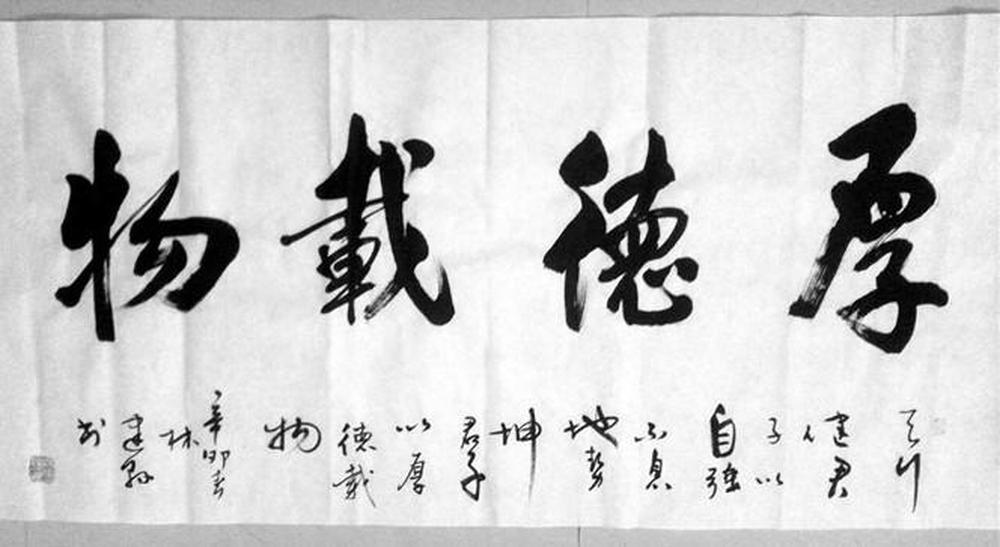 厚德載物
天行
健君
子以
自强
不息
地勢
坤
君子
以厚
德載
物
辛卯春
林
建
书